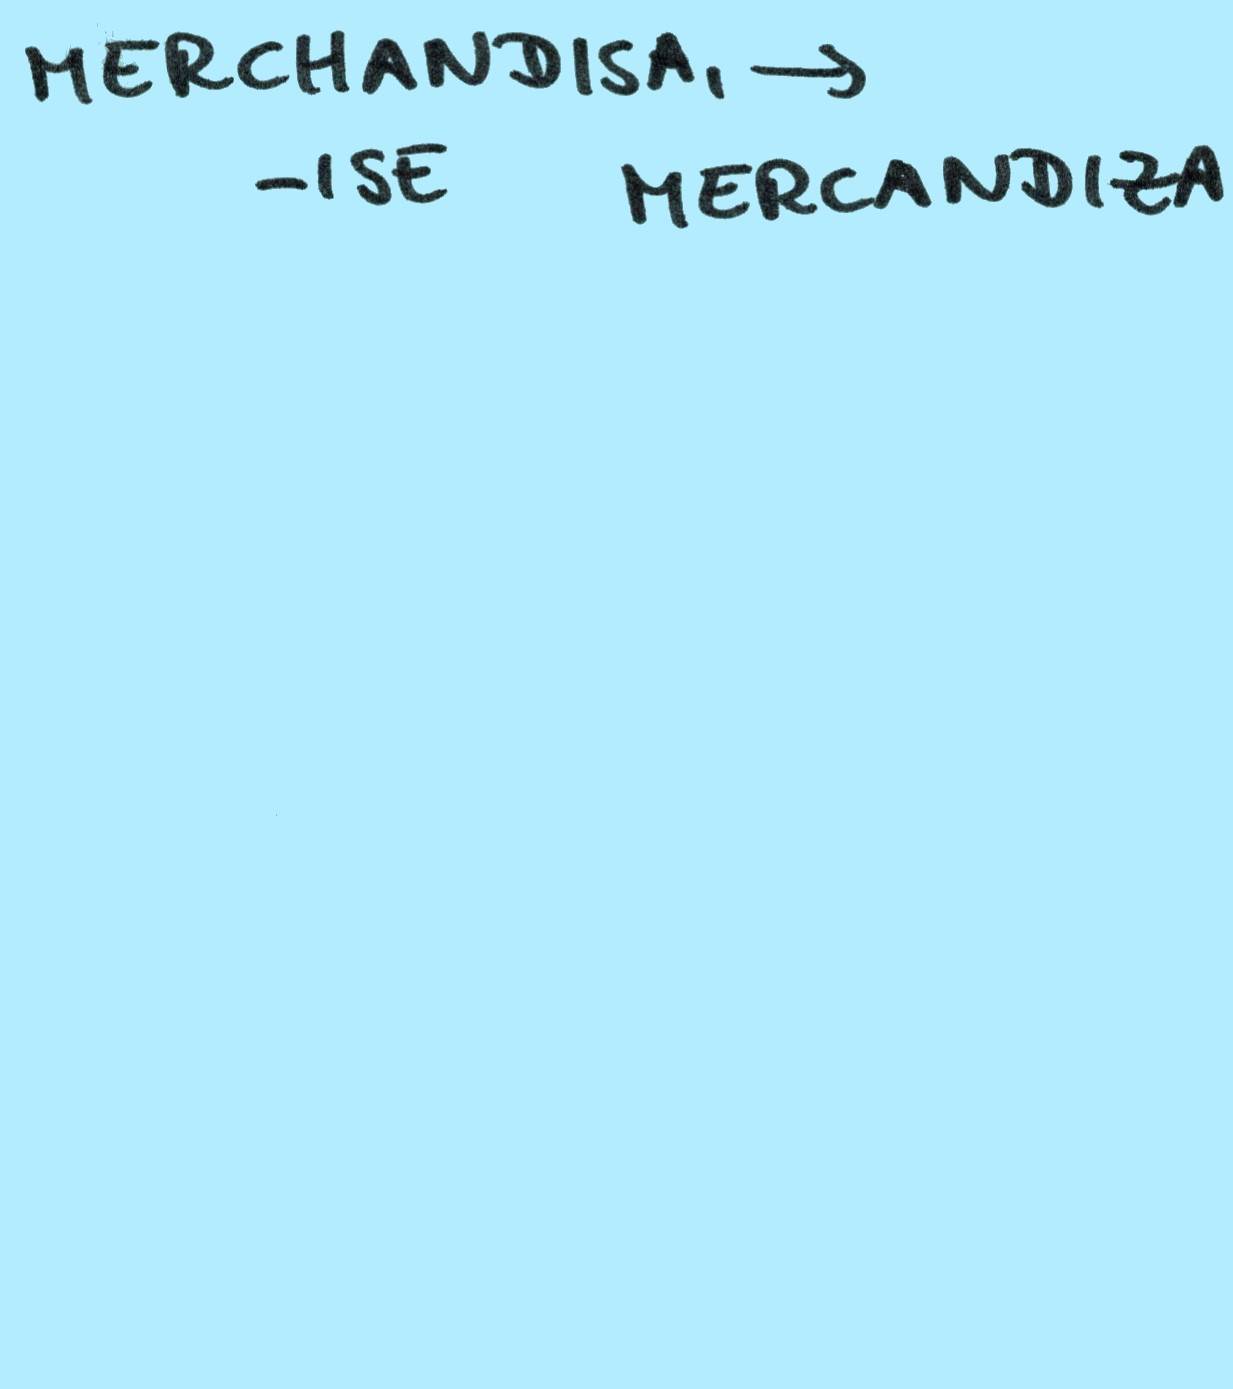 MERCHANDISA, →
-ISE MERCANDIZA